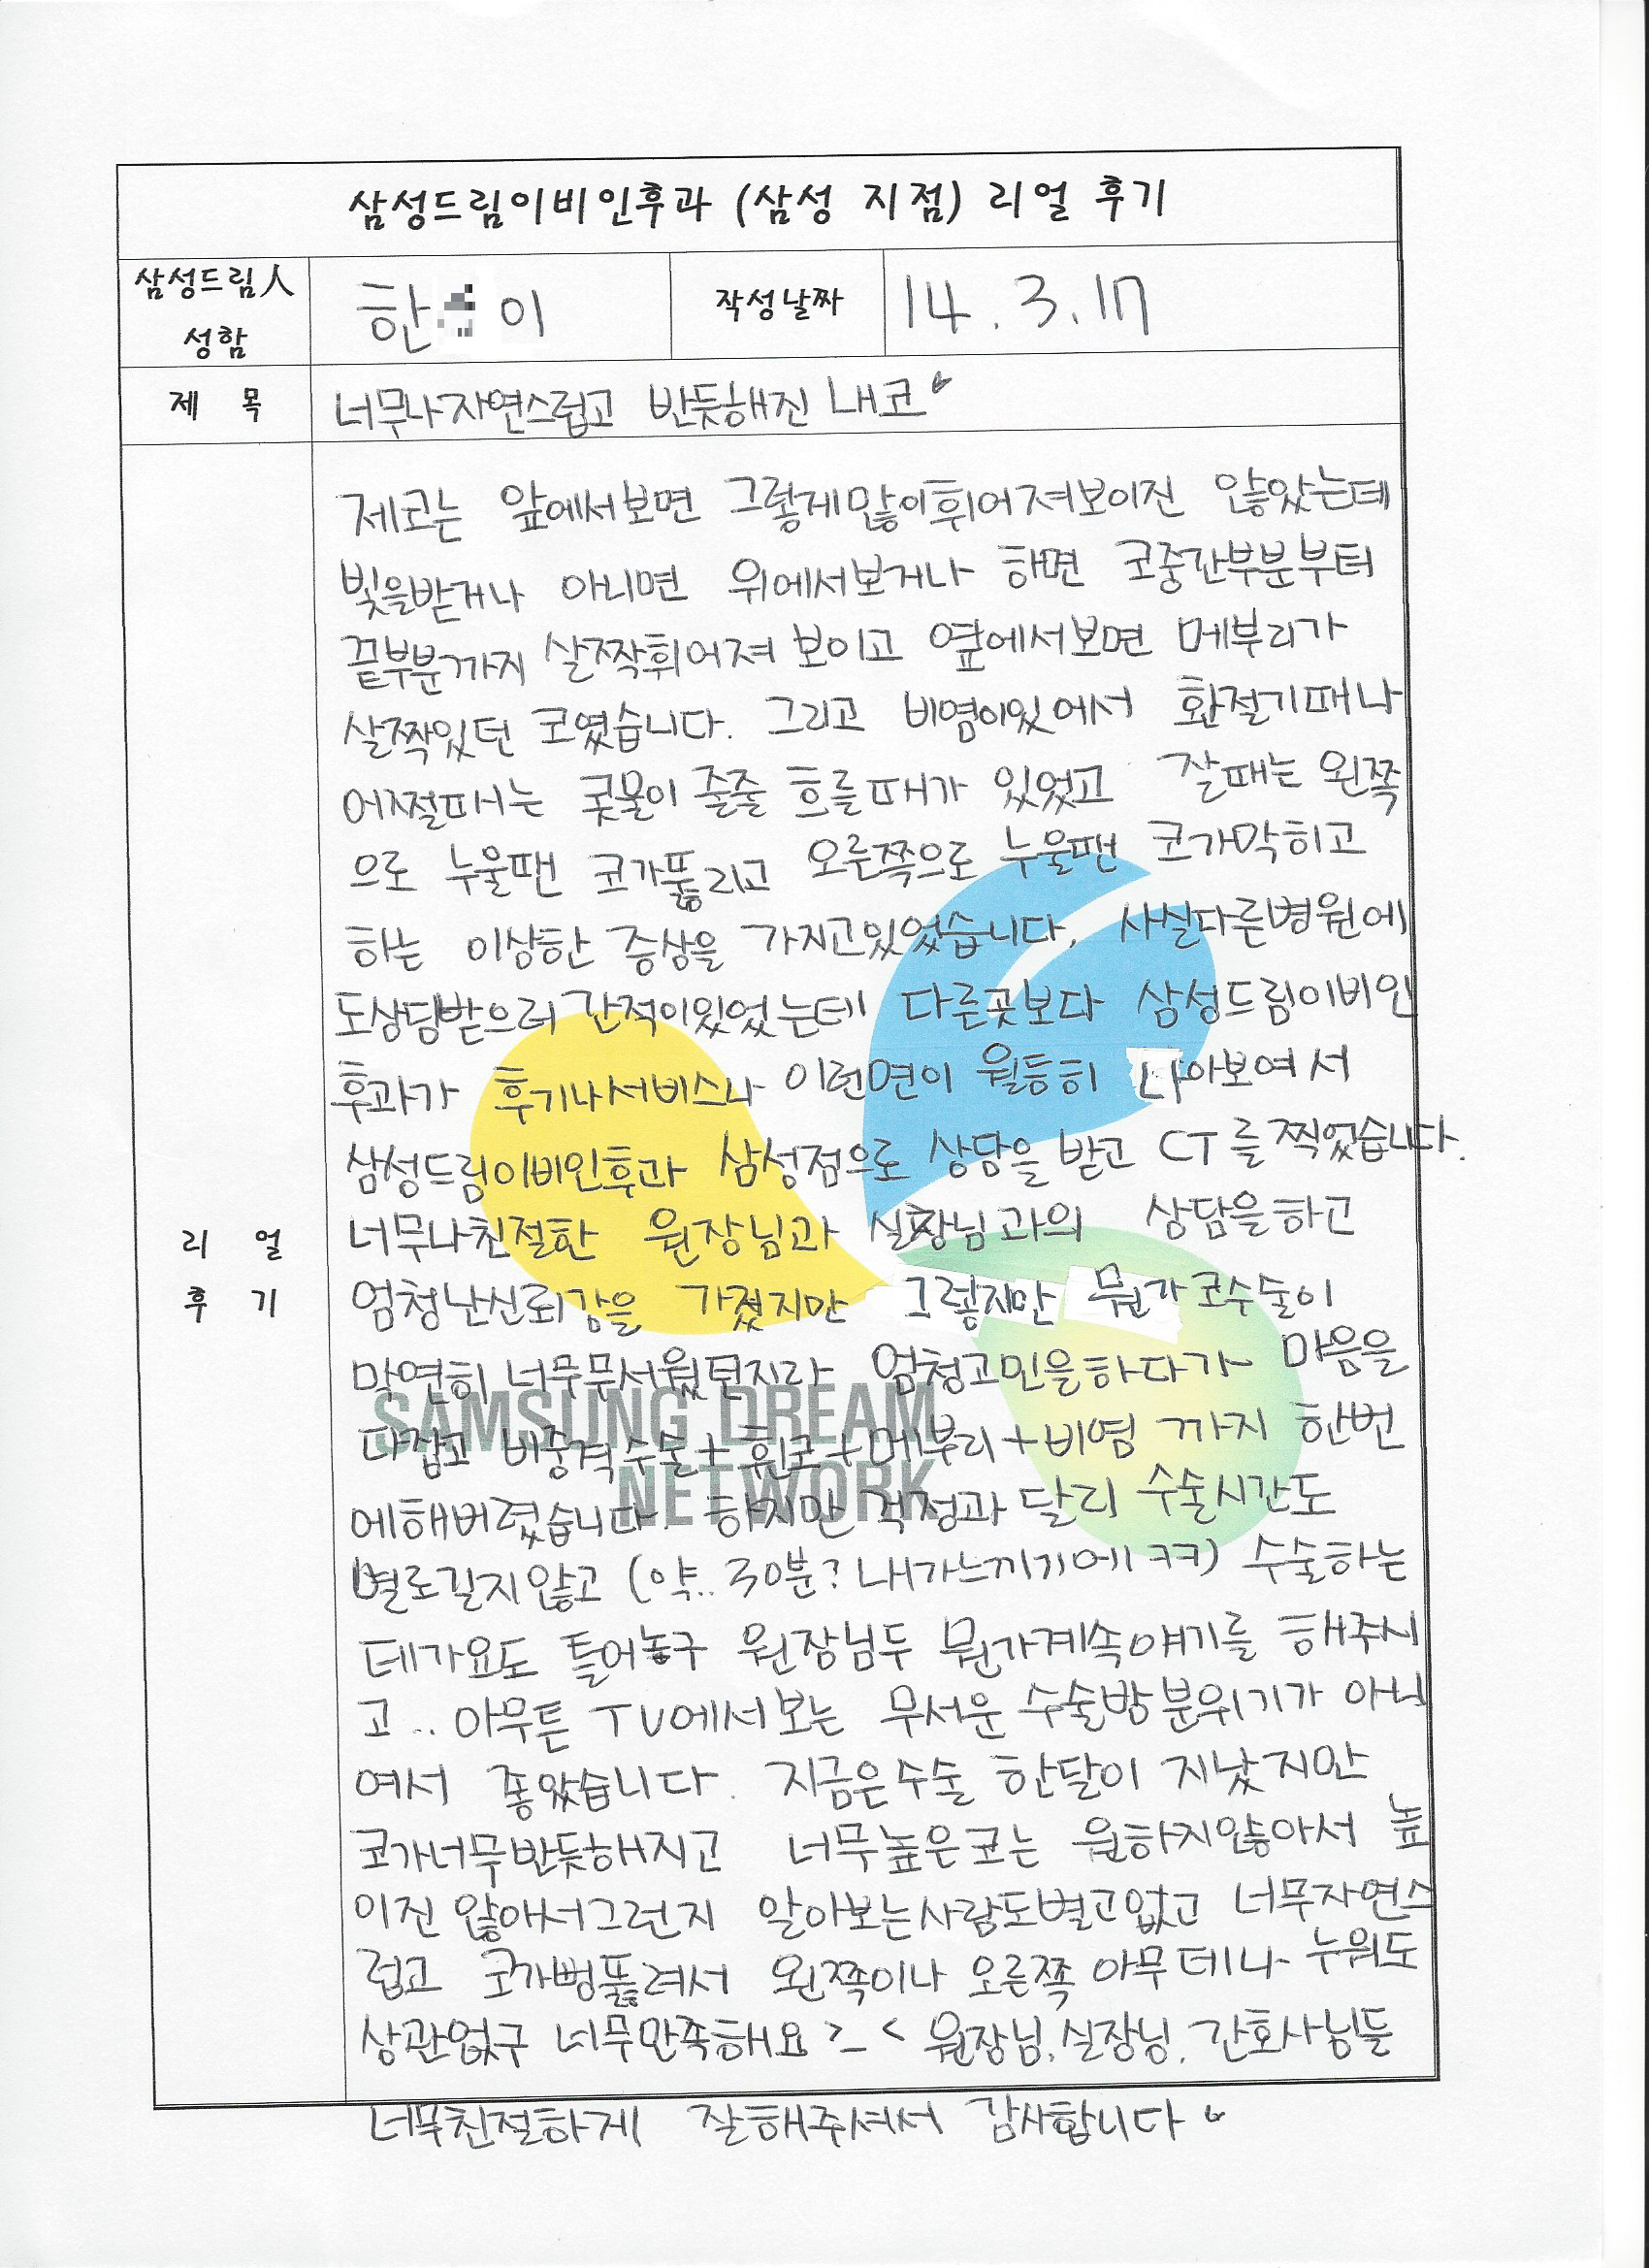 삼성드림이비인후과 (삼성 지점) 리얼 후기
삼성드림人 성함
한 이
작성날짜
14. 3. 17
제 목
너무나자연스럽고 반듯해진 내코
리 얼 후 기
제코는 앞에서보면 그렇게많이휘어져보이진 않았는데
빛을받거나 아니면 위에서보거나 하면 코중간부분부터
끝부분까지 살짝휘어져 보이고 옆에서보면 메부리가
살짝있던 코였습니다. 그리고 비염이있에서 환절기때나
어쩔때는 콧물이 줄줄 흐를때가 있었고 잘때는 왼쪽
으로 누울땐 코가뚫리고 오른쪽으로 누울땐 코가막히고
하는 이상한 증상을 가지고있었습니다. 사실다른병원에
도상담받으러 간적이있었는데 다른곳보다 삼성드림이비인
후과가 후기나서비스나 이런면이 월등히 나아보여서
삼성드림이비인후과 삼성점으로 상담을 받고 CT를찍었습니다.
너무나친절한 원장님과 실장님과의 상담을하고
엄청난신뢰감을 가졌지만 그렇지만 뭔가코수술이
막연히너무무서웠던지라 엄청고민을하다가 마음을
다잡고 비중격수술+휜코+메부리+비염 까지 한번
에해버렸습니다. 하지만 걱정과 달리 수술시간도
별로길지않고 (약.. 30분? 내가느끼기에ㅋㅋ) 수술하는
데가요도 틀어놓구 원장님두 뭔가계속얘기를 해주시
고.. 아무튼 TV에서보는 무서운 수술방분위기가 아니
여서 좋았습니다. 지금은수술 한달이 지났지만
코가너무반듯해지고 너무높은코는 원하지않아서 높
이진 않아서그런지 알아보는사람도별고없고 너무자연스
럽고 코가뻥뚫려서 왼쪽이나 오른쪽 아무데나 누워도
상관없구 너무만족해요 >_< 원장님, 실장님, 간호사님들
너무친절하게 잘해주셔서 감사합니다
SAMSUNG DREAM
NETWORK